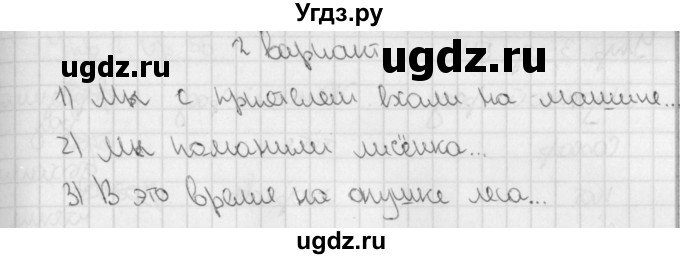 Угдз.ру
2 вариант
ugdz.ru ugdz.ru
1) Мы с приятелем ехали на машине...
2) Мы поманили лисёнка...
3) В это время на опушке леса...
ugdz.ru ugdz.ru
ugdz.ru